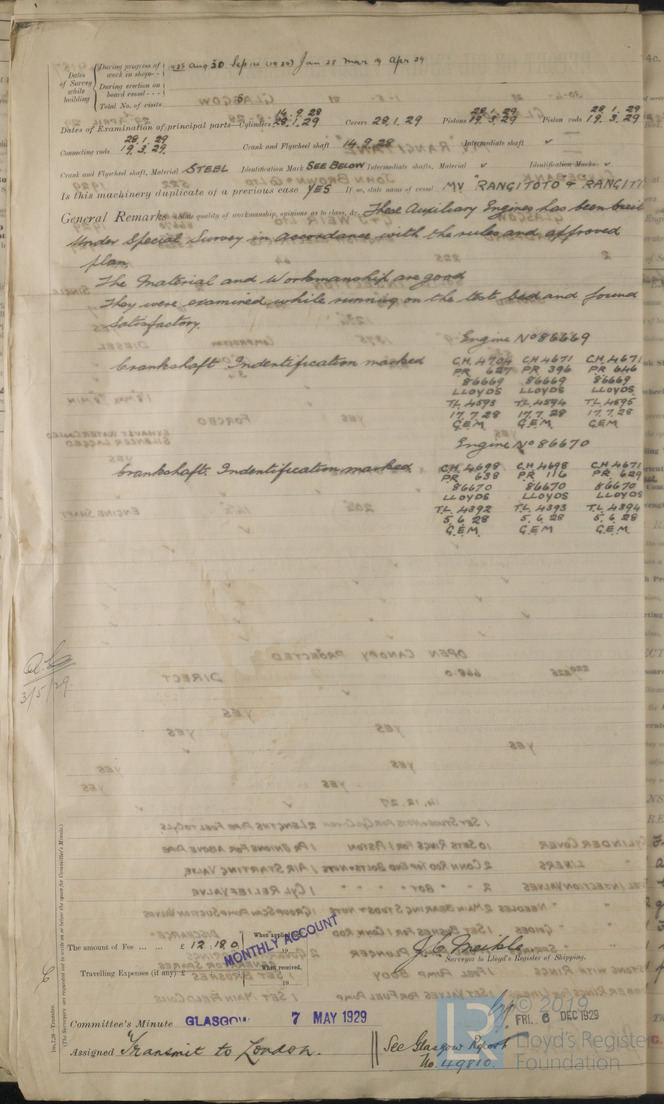 Dates of Survey while building
During progress of work in shops - - 1928 Aug 30 Sep 14 (1929) Jan 28 Mar 19 Apr 29
During erection on board vessel - - -
Total No. of visits 5
Dates of Examination of principal parts—Cylinders 14.9.28 28.1.29 Covers 28.1.29 Pistons 28.1.29 19.3.29 Piston rods 28.1.29 19.3.29
Connecting rods 28.1.29 19.3.29. Crank and Flywheel shaft 14.9.28 Intermediate shaft ✓
Crank and Flywheel shaft, Material STEEL Identification Mark SEE BELOW Intermediate shafts, Material ✓ Identification Marks ✓
Is this machinery duplicate of a previous case YES If so, state name of vessel MV RANGITOTO & RANGITI
General Remarks (State quality of workmanship, opinions as to class, &c. These Auxiliary Engines has been built
under Special Survey in accordance with the rules and approved
plan,
The Material and Workmanship are good
They were examined while running on the test bed and found
Satisfactory.
Engine No 86669
Crankshaft Indentification marked
CH 4704 CH 4671 CH 4671
PR 627 PR 396 PR 646
86669 86669 86669
LLOYDS LLOYDS LLOYDS
TL 4593 TL 4594 TL 4595
17.7.28 17.7.28 17.7.28
G.E.M G.E.M G.E.M
Engine No 86670
Crankshaft. Indentification marked
CH 4698 CH 4698 CH 4671
PR 638 PR 116 PR 629
86670 86670 86670
LLOYDS LLOYDS LLOYDS
TL 4392 TL 4393 TL 4394
5.6.28 5.6.28 5.6.28
G.E.M G.E.M G.E.M
3/5/29
Im.7.28—Transfer.
(The Surveyors are requested not to write on or below the space for Committee's Minute.)
The amount of Fee ... ... £ 12.18.0
When applied for,
19
MONTHLY ACCOUNT
Travelling Expenses (if any) £
When received,
19
Surveyor to Lloyd's Register of Shipping.
Committee's Minute GLASGOW 7 MAY 1929
FRI. 6 DEC 1929
Assigned Transmit to London.
See Glasgow Report
No. 49810
© 2019
Lloyd's Register
Foundation
LR